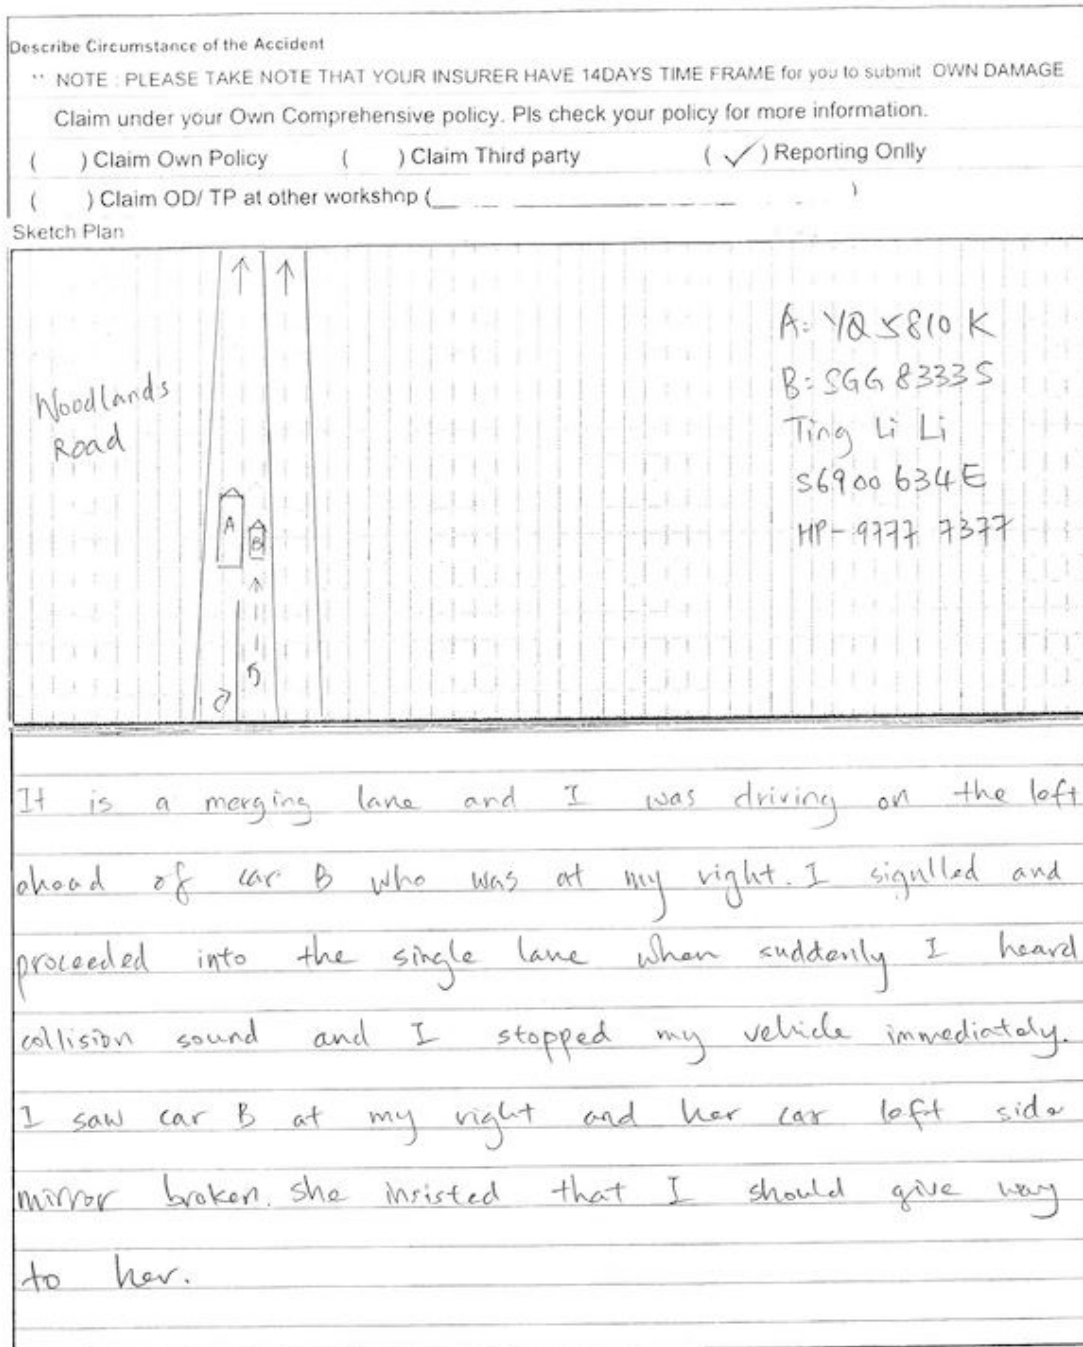 Describe Circumstance of the Accident
" NOTE : PLEASE TAKE NOTE THAT YOUR INSURER HAVE 14DAYS TIME FRAME for you to submit OWN DAMAGE
Claim under your Own Comprehensive policy. Pls check your policy for more information.
( ) Claim Own Policy ( ) Claim Third party ( ✓ ) Reporting Onlly
( ) Claim OD/ TP at other workshop (_ _ _ _ )
Sketch Plan
Woodlands
Road
A
B
A: YQ 5810 K
B: SGG 8333 S
Ting Li Li
S6900634E
HP- 9777 7377
It is a merging lane and I was driving on the left
ahead of car B who was at my right. I signlled and
proceeded into the single lane when suddenly I heard
collision sound and I stopped my vehicle immediately.
I saw car B at my right and her car left side
mirror broken. She insisted that I should give way
to her.